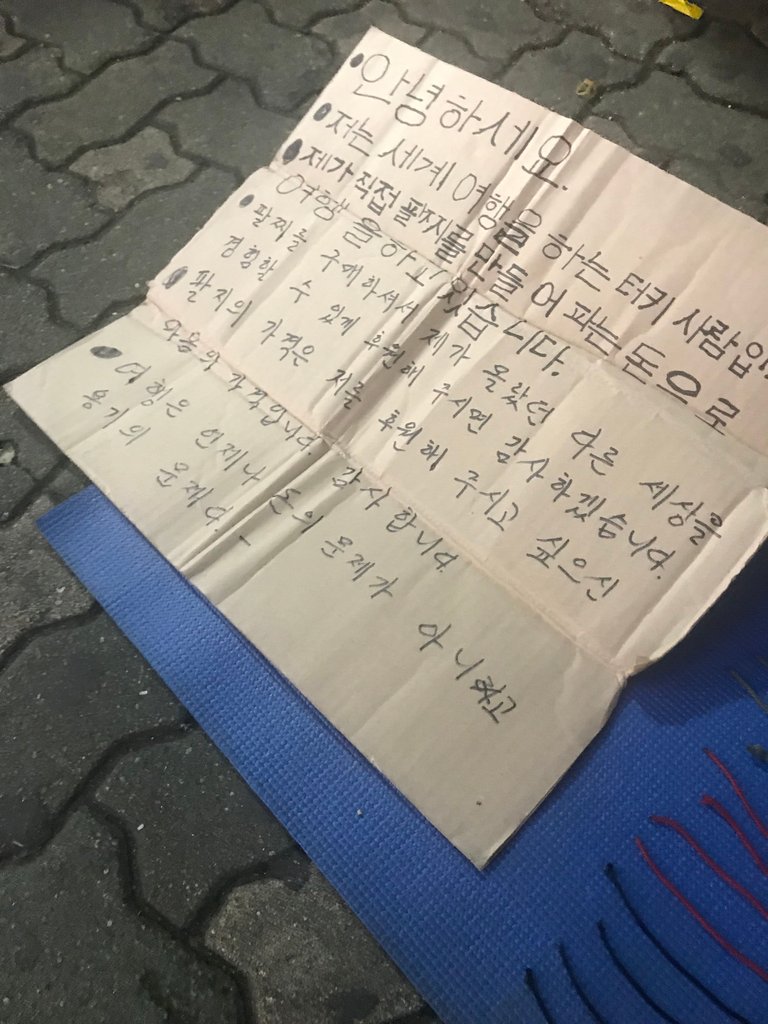 안녕하세요.
저는 세계 여행을 하는 터키 사람입
제가 직접 팔찌를 만들어 파는 돈으로
여행을 하고 있습니다.
팔찌를 구매하셔서 제가 몰랐던 다른 세상을
경험할 수 있게 후원해 주시면 감사하겠습니다.
팔지의 가격은 저를 후원해 주시고 싶으신
마음의 가격입니다. 감사합니다.
여행은 언제나 돈의 문제가 아니하고
용기의 문제다.